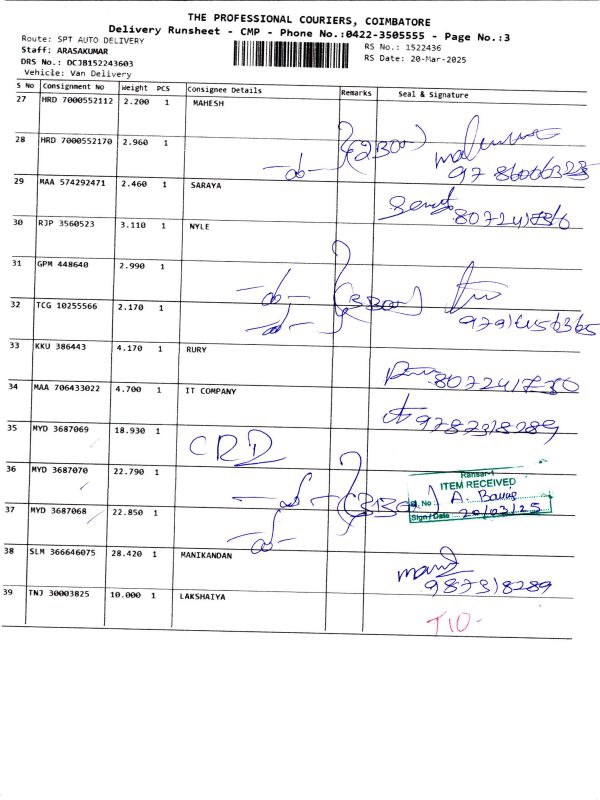 THE PROFESSIONAL COURIERS, COIMBATORE
Delivery Runsheet - CMP - Phone No.:0422-3505555 - Page No.:3
Route: SPT AUTO DELIVERY
RS No.: 1522436
Staff: ARASAKUMAR
RS Date: 20-Mar-2025
DRS No.: DCJB152243603
Vehicle: Van Delivery
S No Consignment No Weight PCS Consignee Details Remarks Seal & Signature
27 HRD 7000552112 2.200 1 MAHESH
28 HRD 7000552170 2.960 1
29 MAA 574292471 2.460 1 SARAYA
30 RJP 3560523 3.110 1 NYLE
31 GPM 448640 2.990 1
32 TCG 10255566 2.170 1
33 KKU 386443 4.170 1 RURY
34 MAA 706433022 4.700 1 IT COMPANY
9787318289
35 MYD 3687069 18.930 1 CRD
Ransar-1
ITEM RECEIVED
36 MYD 3687070 22.790 1
No
Sign / Date 20/03/25
37 MYD 3687068 22.850 1
38 SLM 366646075 28.420 1 MANIKANDAN
mani
987318289
39 TNJ 30003825 10.000 1 LAKSHAIYA